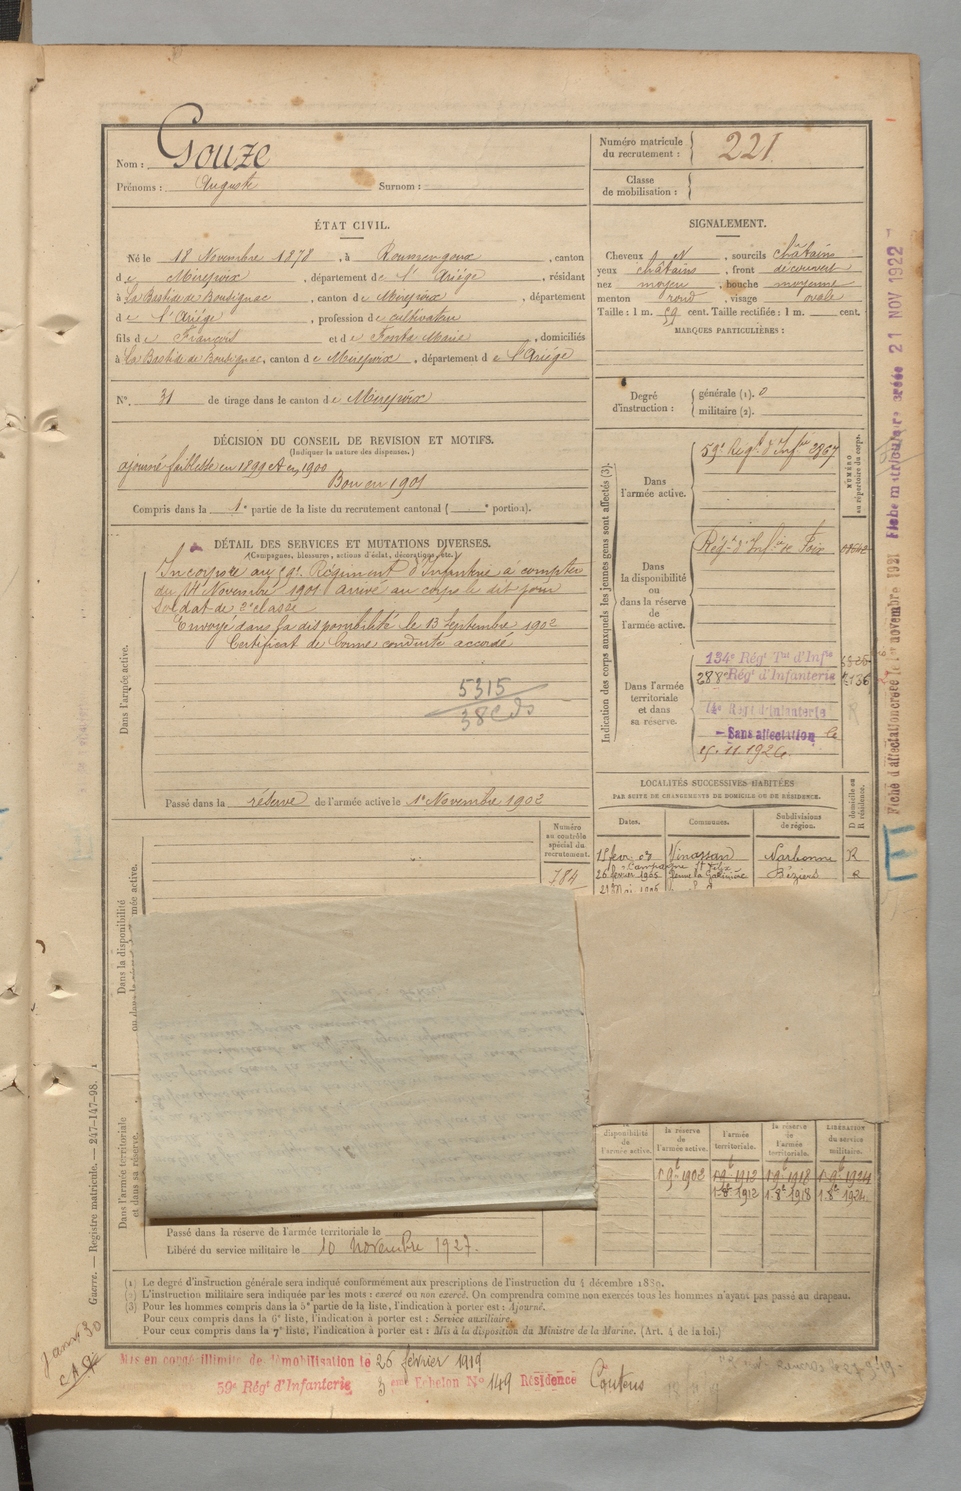 Nom : Gouze
Prénoms : Auguste Surnom :
Numéro matricule du recrutement : 221
Classe de mobilisation :
ÉTAT CIVIL.
Né le 18 Novembre 1878, à Roumengoux, canton
de Mirepoix, département de l'Ariége, résidant
à La Bastide de Bousignac, canton de Mirepoix, département
de l'Ariége, profession de cultivateur
fils de François et de Fonta Marie, domiciliés
à La Bastide de Bousignac, canton de Mirepoix, département de l'Ariége
N°. 31 de tirage dans le canton de Mirepoix
SIGNALEMENT.
Cheveux et, sourcils châtains
yeux châtains, front découvert
nez moyen, bouche moyenne
menton rond, visage ovale
Taille : 1 m. 59 cent. Taille rectifiée : 1 m. cent.
MARQUES PARTICULIÈRES :
Degré d'instruction : générale (1). 0
militaire (2).
DÉCISION DU CONSEIL DE REVISION ET MOTIFS.
(Indiquer la nature des dispenses.)
ajourné faiblesse en 1899 et en 1900
Bon en 1901
Compris dans la 1e partie de la liste du recrutement cantonal ( e portion).
DÉTAIL DES SERVICES ET MUTATIONS DIVERSES.
(Campagnes, blessures, actions d'éclat, décorations, etc.)
Dans l'armée active.
Incorporé au 59e Régiment d'Infanterie à compter
du 14 Novembre 1901 arrivé au corps le dit jour
Soldat de 2e classe
Envoyé dans la disponibilité le 13 Septembre 1902
Certificat de bonne conduite accordé
5315
Passé dans la réserve de l'armée active le 1e Novembre 1902
Indication des corps auxquels les jeunes gens sont affectés (3).
NUMÉRO au répertoire du corps.
Dans l'armée active.
59e Régt d'Infrie 3867
Dans la disponibilité ou dans la réserve de l'armée active.
Régt d'Infie de Foix
Dans l'armée territoriale et dans sa réserve.
134e Régt Tal d'Infie
288e Régt d'Infanterie
14e Régt d'Infanterie
Sans affectation le
15.11.1926.
LOCALITÉS SUCCESSIVES HABITÉES
PAR SUITE DE CHANGEMENTS DE DOMICILE OU DE RÉSIDENCE.
Dates. Communes. Subdivisions de région. D domicile ou R résidence.
15 fév. 03 Vinassan Narbonne R
26 février 1905 Béziers R
Numéro au contrôle spécial du recrutement.
784
Dans la disponibilité
Dans l'armée territoriale et dans sa réserve.
disponibilité de l'armée active.
la réserve de l'armée active.
l'armée territoriale.
la réserve de l'armée territoriale.
LIBÉRATION du service militaire.
1 9e 1902 1 9e 1912 1 9e 1918 1 9e 1924
1 8e 1912 1 8e 1918 1 8e 1924
Passé dans la réserve de l'armée territoriale le
Libéré du service militaire le 10 novembre 1927.
(1) Le degré d'instruction générale sera indiqué conformément aux prescriptions de l'instruction du 4 décembre 1889.
(2) L'instruction militaire sera indiquée par les mots : exercé ou non exercé. On comprendra comme non exercés tous les hommes n'ayant pas passé au drapeau.
(3) Pour les hommes compris dans la 5e partie de la liste, l'indication à porter est : Ajourné.
Pour ceux compris dans la 6e liste, l'indication à porter est : Service auxiliaire.
Pour ceux compris dans la 7e liste, l'indication à porter est : Mis à la disposition du Ministre de la Marine. (Art. 4 de la loi.)
Mis en congé illimité de démobilisation le 26 février 1919
59e Régt d'Infanterie 3eme Echelon N° 149 Résidence Coutens
Guerre. — Registre matricule. — 247-147-98.
Fiche d'affectation créée le 1er novembre 1921 Fiche matriculaire créée 21 NOV 1922